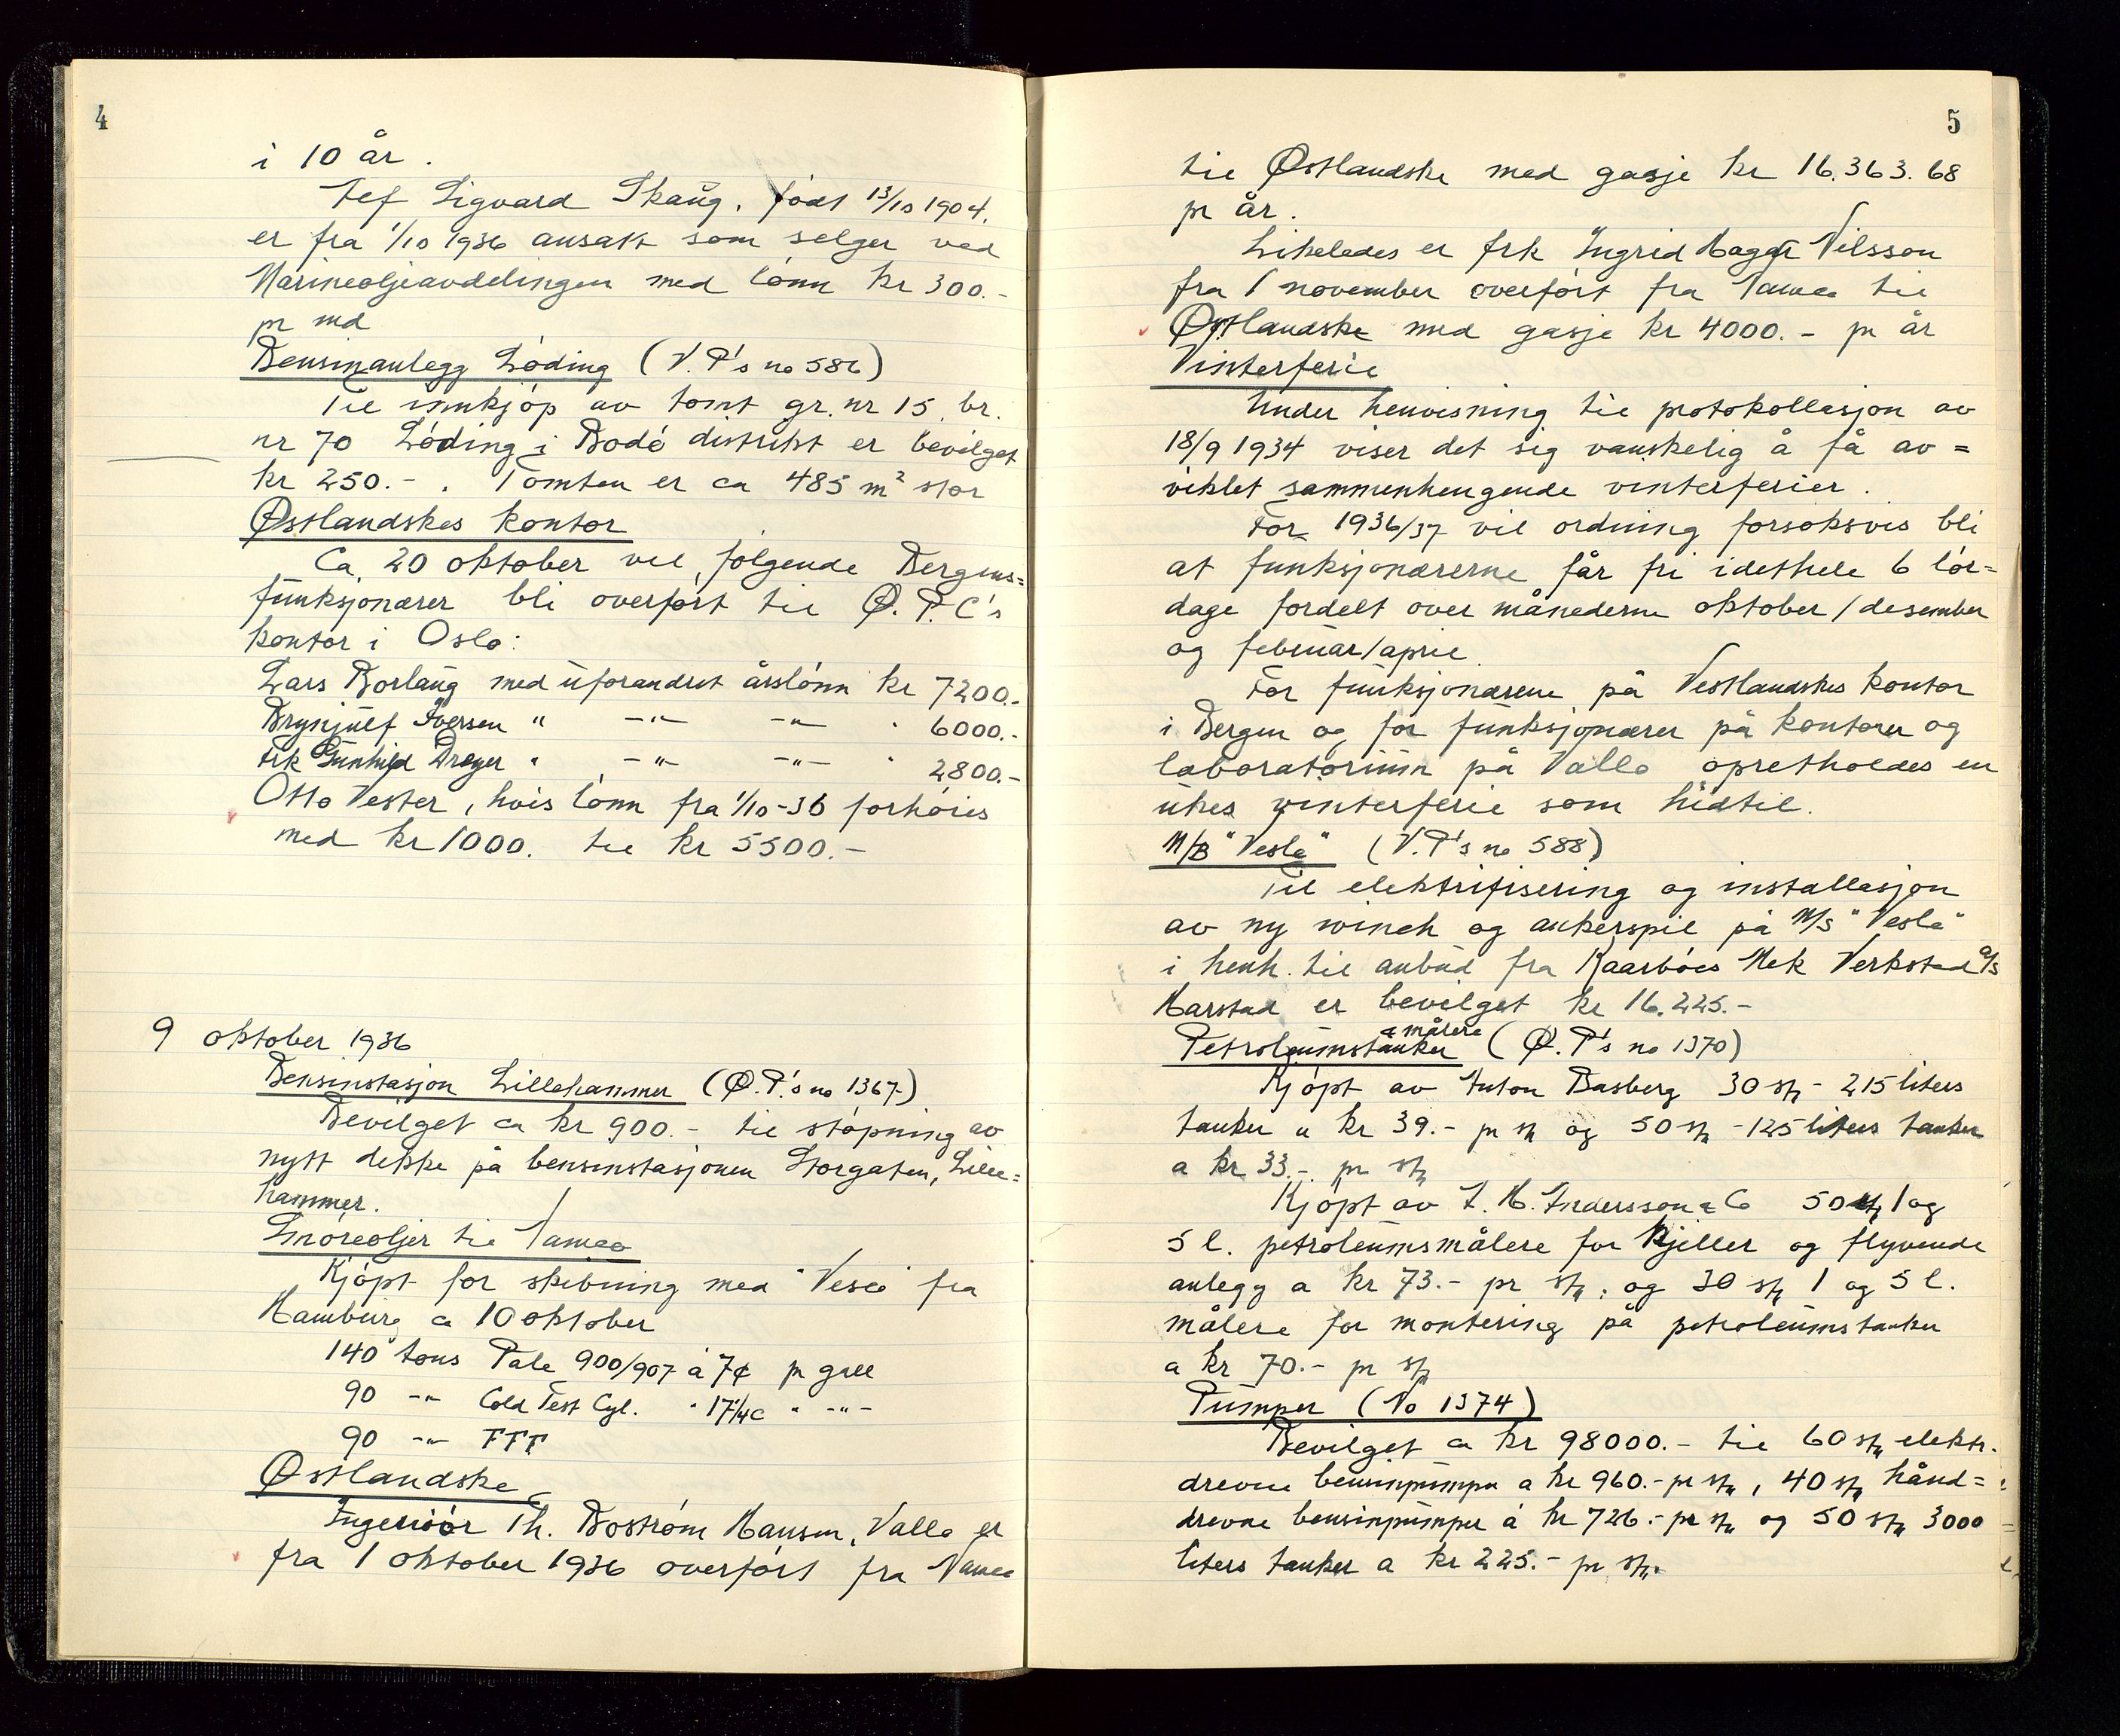 4
i 10 år.
Leif Sigvard Skaug, født 13/10 1904,
er fra 1/10 1936 ansatt som selger ved
Marineoljeavdelingen med lønn kr 300.-
pr md
Bensinanlegg Løding (V.P's no 586)
Til innkjøp av tomt gr. nr 15 br.
nr 70 Løding i Bodø distrikt er bevilget
kr 250.-. Tomten er ca 485 m² stor
Østlandskes kontor
Ca. 20 oktober vil følgende Bergens=
funksjonærer bli overført til Ø.P.C's
kontor i Oslo:
Lars Borlaug med uforandret årslønn kr 7200.-
Brynjulf Iversen " -"- -"- " 6000.-
Frk Gunhild Dreyer " -"- -"- " 2800.-
Otto Vester, hvis lønn fra 1/10-36 forhøies
med kr 1000. til kr 5500.-
9 oktober 1936
Bensinstasjon Lillehammer (Ø.P.'s no 1367)
Bevilget ca kr 900.- til støpning av
nytt dekke på bensinstasjonen Storgaten, Lille=
hammer.
Smøreoljer til Vamea
Kjøpt for skibning med "Vesla" fra
Hamburg ca 10 oktober
140 tons Pale 900/907 á 7¢ pr gall
90 -"- Cold Test Cyl. " 17 1/4 c " -"-
90 -"- FFF
Østlandske
Ingeniør Th. Bostrøm Hansen, Vallø er
fra 1 oktober 1936 overført fra Vamea
5
til Østlandske med gasje kr 16.363.68
pr år.
Likeledes er frk Ingrid Nilsson
fra 1 november overført fra Vamea til
Østlandske med gasje kr 4000.- pr år
Vinterferie
Under henvisning til protokollasjon av
18/9 1934 viser det sig vanskelig å få av=
viklet sammenhengende vinterferier.
For 1936/37 vil ordning forsøksvis bli
at funksjonærerne får fri idethele 6 lør=
dage fordelt over månederne oktober/desember
og februar/april.
For funksjonærene på Vestlandskes kontor
i Bergen og for funksjonærer på kontorer og
laboratorium på Vallø opretholdes en
ukes vinterferie som hidtil.
M/B "Vesla" (V.P's no 588)
Til elektrifisering og installasjon
av ny winch og ankerspil på M/S "Vesla"
i henh. til anbud fra Kaarbøes Mek Verksted A/S
Harstad er bevilget kr 16.225.-
Petroleumstanker & målere (Ø.P's no 1370)
Kjøpt av Anton Basberg 30 stk - 215 liters
tanker a kr 39.- pr stk og 50 stk - 125 liters tanker
a kr 33.- pr stk
Kjøpt av A. H. Andersson & Co 50 stk 1 og
5 l. petroleumsmålere for kjeller og flyvende
anlegg a kr 73.- pr stk, og 30 stk 1 og 5 l.
målere for montering på petroleumstanker
a kr 70.- pr stk
Pumper (No 1374)
Bevilget ca kr 98000.- til 60 stk elektr.
drevne bensinpumper a kr 960.- pr stk, 40 stk hånd=
drevne bensinpumper á kr 726.- pr stk og 50 stk 3000
liters tanker a kr 225.- pr stk.